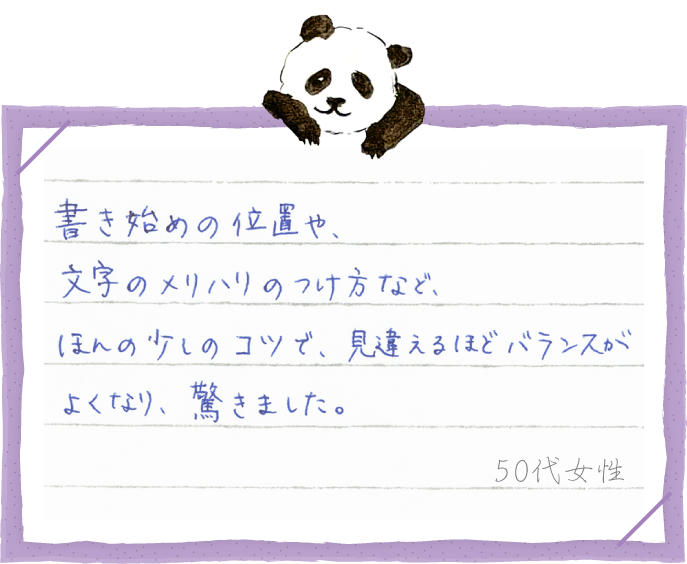 書き始めの位置や、
文字のメリハリのつけ方など、
ほんの少しのコツで、見違えるほどバランスが
よくなり、驚きました。
50代女性